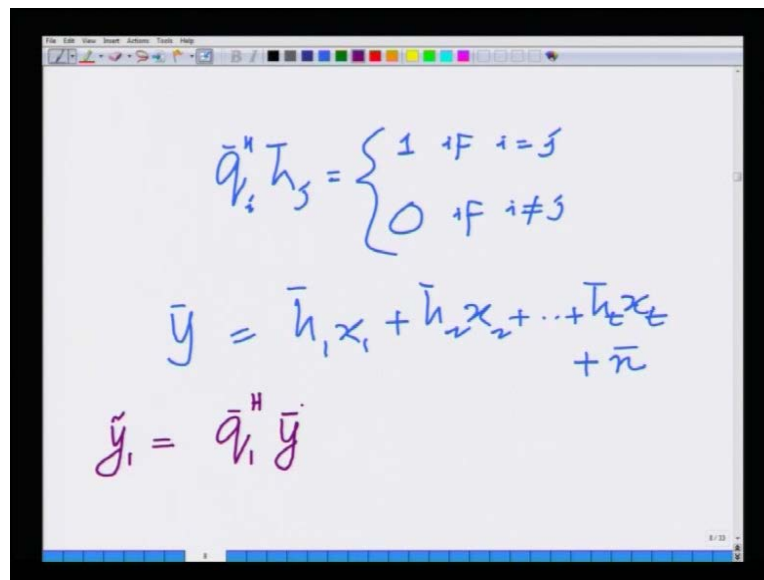 File Edit View Insert Actions Tools Help
B I
q̄ᵢᴴ h̄ⱼ = { 1 if i = j
0 if i ≠ j
ȳ = h̄₁x₁ + h̄₂x₂ + ... + h̄ₜxₜ
+ n̄
ỹ₁ = q̄₁ᴴ ȳ
8
8 / 33